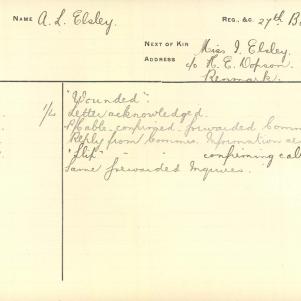 NAME A. L. Elsley
REG., &C. 27th B
NEXT OF KIN Miss I. Elsley.
ADDRESS c/o H. E. Dopson
Renmark.
"Wounded".
1/4 Letter acknowledged.
Cable confirmed forwarded Comm
Reply from Commrs. Information
"Slip" - - confirming cabl
Same forwarded Inquirer.